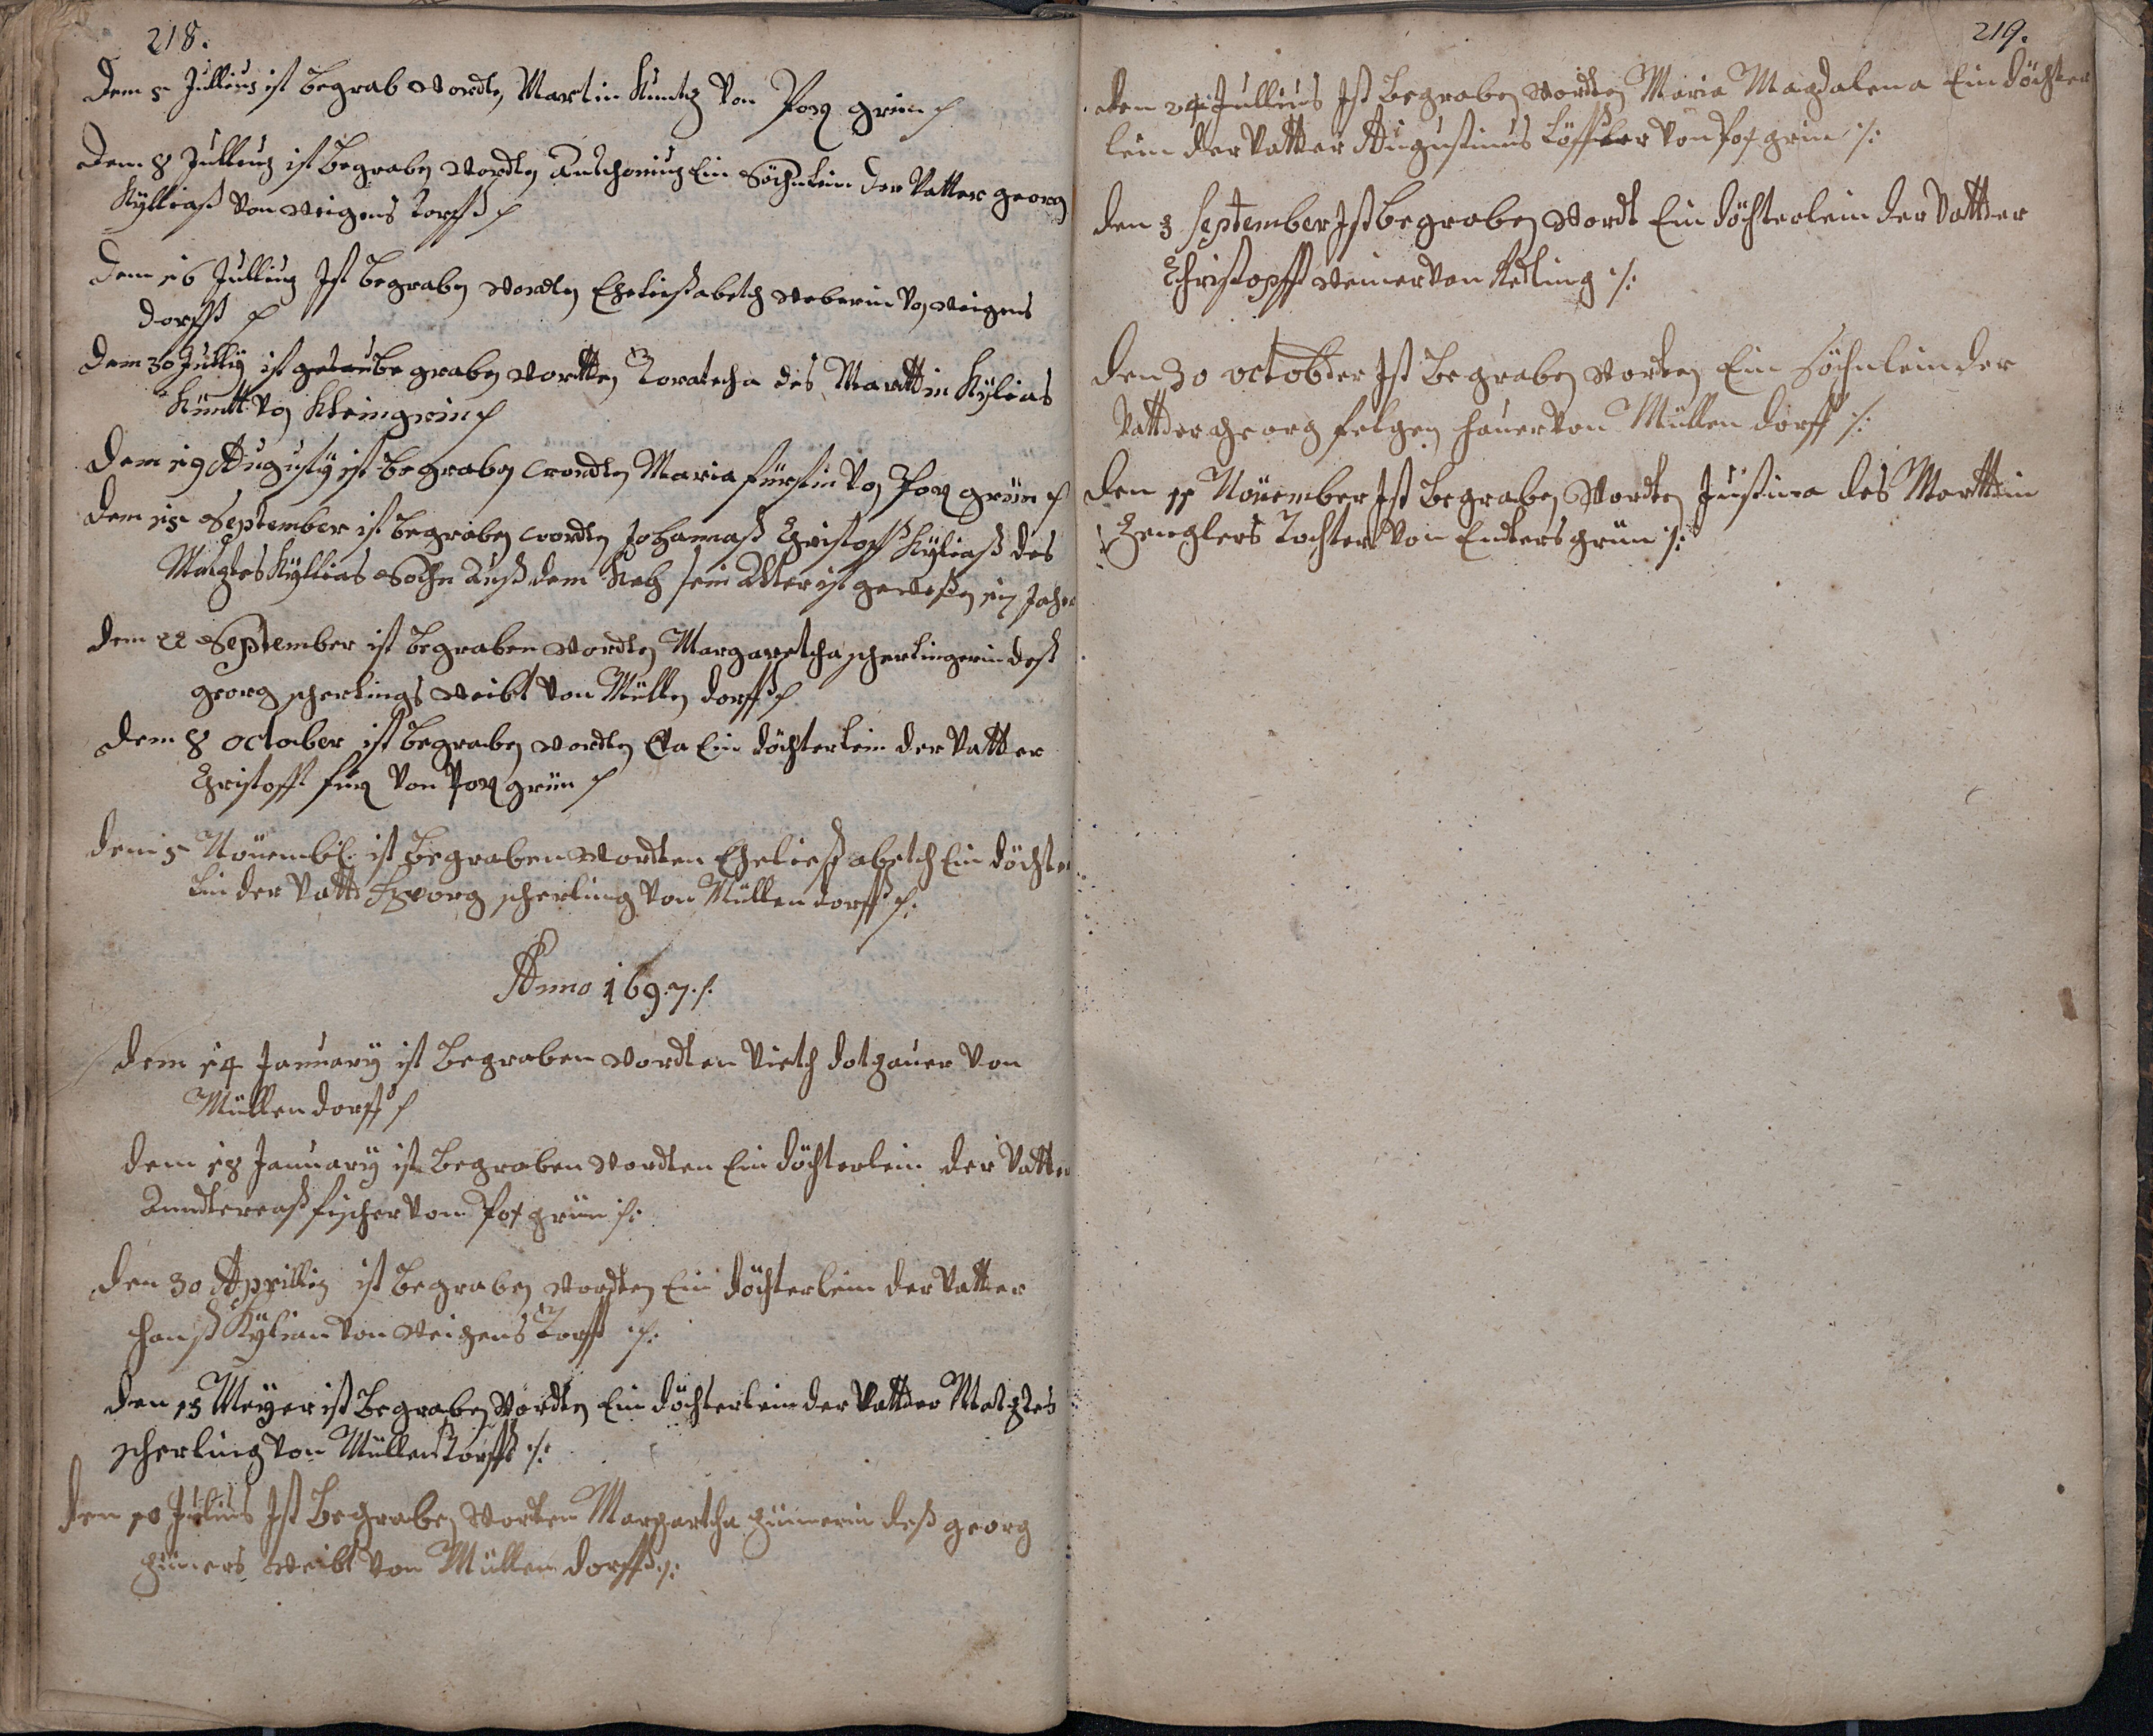 218.
Dem 5 Jullius ist begrab wordtn Martin Kuntz von Pox grün
Dem 8 Julluz ist begraben wordten Anthoniuz Ein Söhnlein der Vatter georg
Kylliaß von weigens dorff
Dem 16 Julliuz Ist begraben wordten Eheliesabetch weberin von weigens
dorff
Dem 30 Julliy ist begraben wortten Toratecha des Marttin Kylias
Kindt von Kleingrün
Dem 19 Augusty ist begraben wordten Maria fürstin von Pox grün
Dem 15 September ist begraben wordten Johannaß Christoff Kyliaß des
Kyllias Sohn Auß dem sein Alter ist geweßen 17 Jahr
Dem 22 September ist begraben wordten Margaretcha scherlingerin deß
georg scherlings weibt von Müllen dorff
Dem 8 october ist begraben wordten Eva Ein döchterlein der Vatter
Christoff von Pox grün
Dem 5 Nouemb ist begraben wordten Eheliessabetch Ein döchter
lin der Vatt georg scherling von Müllen dorff
Anno 1697
dem 14 January ist begraben wordten Vieth dotzauer von
Müllen dorff
dem 18 January ist begraben wordten Ein döchterlein der Vatter
Anndtereaß fischer von Pox grün
den 30 Aprilliz ist begraben wordten Ein döchterlein der Vatter
hanß Kylian von weigens dorff
den 15 Meyer ist begraben wordten Ein döchterlein der Vatter
scherling von Müllen dorff
den 10 Julius Ist begraben worten Margartcha zümerin deß georg
zümers weibt von Müllen dorff
219.
den 24 Jullius Ist begraben wordten Maria Magdalena Ein döchter
lein der Vatter Augustinus Löffler von Pox grün
den 3 September Ist begraben wordt Ein döchterlein der Vatter
Christopff weiner von Redling
den 30 october Ist begraben worden Ein Söhnlein der
Vatter georg felgen hauer von Müllen dorff
den 11 Nouember Ist begraben wordten Justina des Marttin
Zenglers Tochter von Enders grün